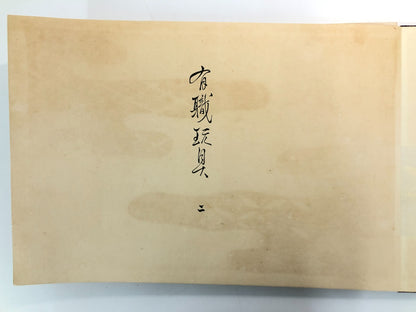 有職玩具 二